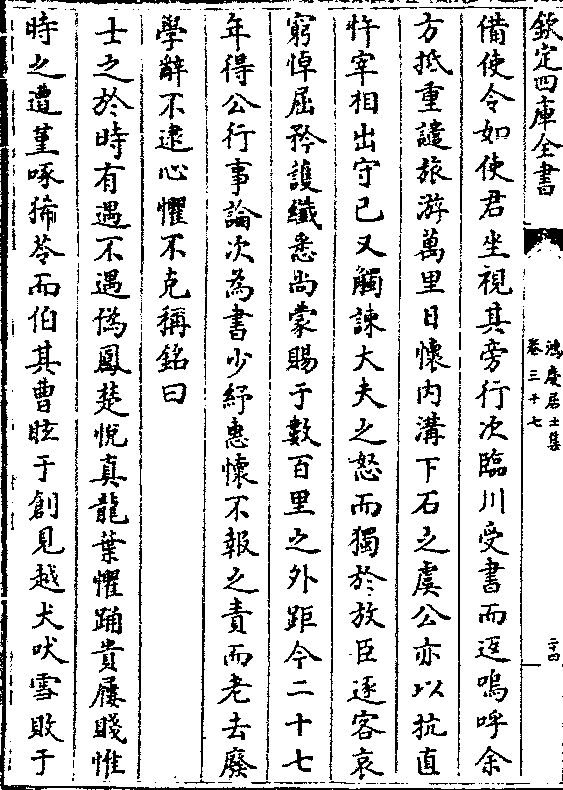 欽定四庫全書
鴻慶居士集
卷三十七
二十四
備使令如使君坐視其旁行次臨川受書而返嗚呼余
方抵重譴旅游萬里日懷内溝下石之虞公亦以抗直
忤宰相出守已又觸諫大夫之怒而獨於放臣逐客哀
窮悼屈矜護纎悉尚蒙賜于數百里之外距今二十七
年得公行事論次為書少紓惠懷不報之責而老去廢
學辭不逮心懼不克稱銘曰
士之於時有遇不遇偽鳳楚悅真龍葉懼踊貴屨賤惟
時之遭堇啄狶苓而伯其曹眩于創見越犬吠雪敗于